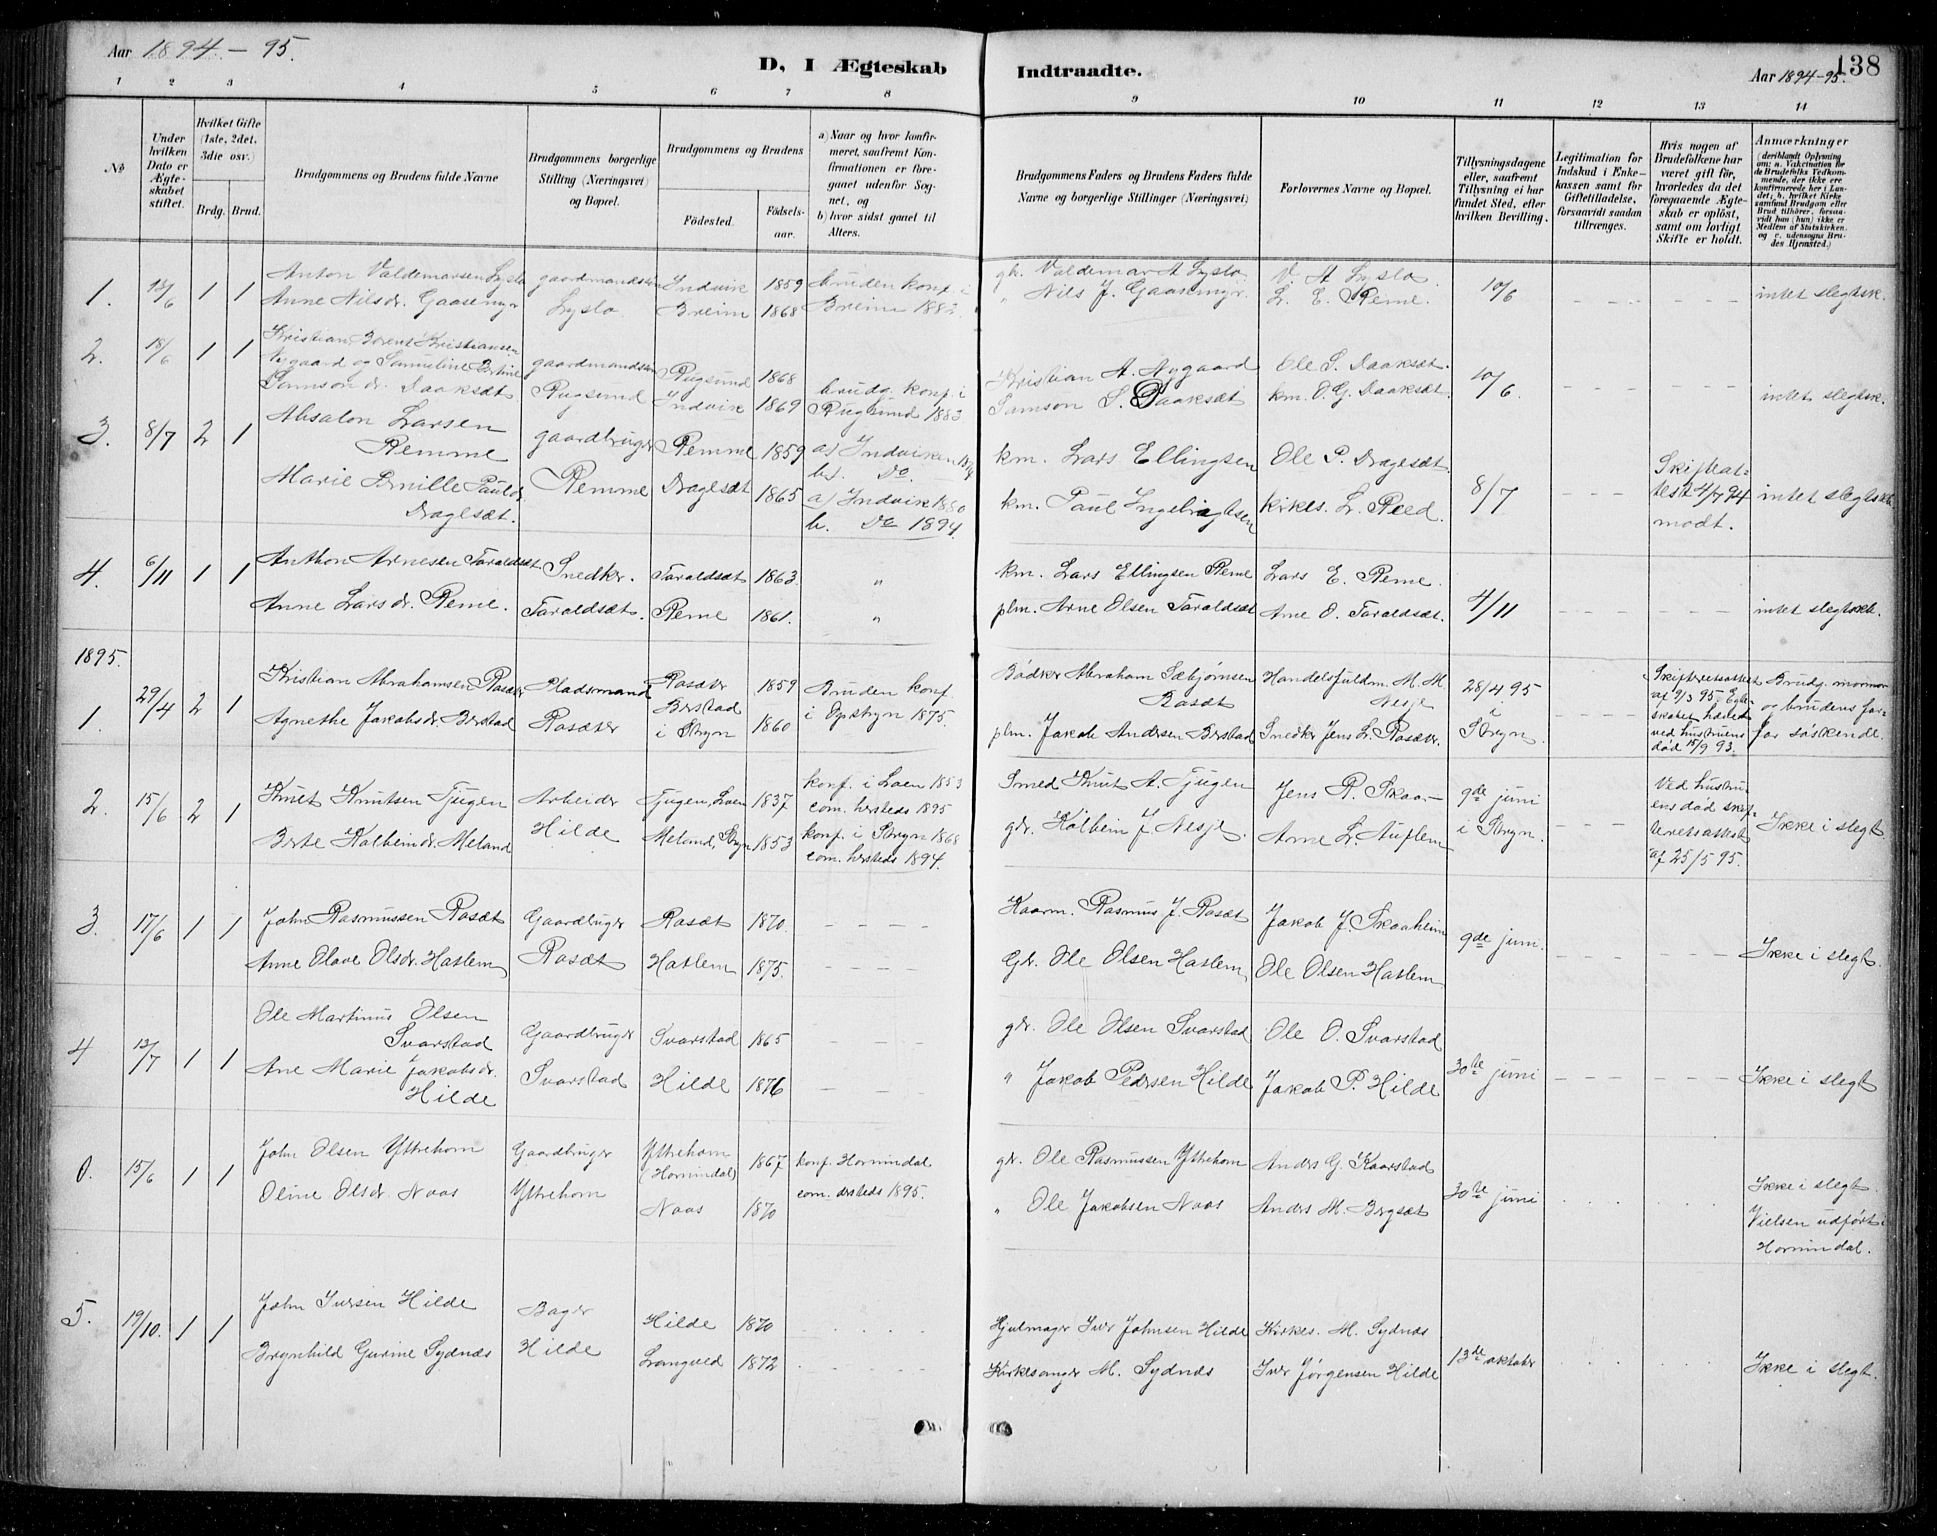 Aar 1894 - 95.
D, I Ægteskab Indtraadte.
Aar 1894-95.
138
1 2 3 4 5 6 7 8 9 10 11 12 13 14
No
Under hvilken Dato er Ægteskabet stiftet.
Hvilket Gifte (1ste, 2det, 3die osv.)
Brdg. Brud.
Brudgommens og Brudens fulde Navne
Brudgommens borgerlige Stilling (Næringsvei) og Bopæl.
Brudgommens og Brudens
Fødested.
Fødselsaar.
a) Naar og hvor konfirmeret, saafremt Konfirmationen er foregaaet udenfor Sognet, og
b) hvor sidst gaaet til Alters.
Brudgommens Faders og Brudens Faders fulde Navne og borgerlige Stillinger (Næringsvei)
Forlovernes Navne og Bopæl.
Tillysningsdagene eller, saafremt Tillysning ei har fundet Sted, efter hvilken Bevilling.
Legitimation for Indskud i Enkekassen samt for Giftetilladelse, forsaavidt saadan tiltrænges.
Hvis nogen af Brudefolkene har været gift før, hvorledes da det foregaaende Ægteskab er opløst, samt om lovligt Skifte er holdt.
Anmærkninger
(deriblandt Oplysning om: a. Vakcination for de Brudefolks Vedkommende, der ikke ere konfirmerede her i Landet; b. hvilket Kirkesamfund Brudgom eller Brud tilhører, forsaavidt han (hun) ikke er Medlem af Statskirken, og c. udensogns Brudes Hjemsted.)
1. 18/6 1 1 Anton Valdemarsen Lyslo gaardmandssøn Indvik 1859 bruden konf. i gb. Valdemar A Lyslo V. A Lyslo 10/6 intet slegtsk.
Anne Nilsdr. Gaasemyr Lyslo. Breim 1868 Breim 1882. " Nils J. Gaasemyr. L. E. Reme.
2. 18/6 1 1 Kristian Berent Kristiansen
Nygaard og Samueline Bertine gaardmandssøn Rugsund 1868 Kristian A. Nygaard Ole S. Daaksæt. 10/6.
Samsondr. Daaksæt Rugsund Indvik 1869 brudg. konf. i Rugsund 1883 Samson S. Daaksæt km. O. G. Daaksæt. intet slegtsk.
3. 8/7 2 1 Absalon Larsen Remme gaardbruger Remme 1859 a) Indviken b). Do. km. Lars Ellingsen Ole P. Dragesæt. 8/7 Skifteattest 4/7 94 modt. intet slegtsk.
Marie Pernille Paulsdr Dragesæt. Remme Dragesæt 1865 a) Indvik 1880 b. Do 1894. km. Paul Ingebrigtsen kirkes. L. Reed.
4. 6/11 1 1 Anthon Arnesen Taraldsæt Snedker. Taraldsæt 1863. " km. Lars Ellingsen Reme Lars E. Reme. 4/11 intet slegtskb.
Anne Larsdr. Reme. Taraldsæt. Reme 1861. " plm. Arne Olsen Taraldsæt Arne O. Taraldsæt.
1895.
1. 29/4 2 1 Kristian Abrahamsen Rosæter Pladsmand Rosæter 1859 Bruden konf. Bødker Abraham Sæbjørnsen Rosæt Handelsfuldm. M. M. Nesje 28/4 95 i Stryn. Skifteretsattest af 9/3 95. Egteskabet hævet ved hustruens død 15/9 93. Brudg. mormor og brudens farfar søskende.
Agnethe Jakobsdr. Berstad Rosæter Berstad i Stryn 1860 i Opstryn 1875. plm. Jakob Andersen Berstad Snedker Jens L. Rosæter.
2. 15/6 2 1 Knut Knutsen Tjugen Arbeider Tjugen, Loen 1837 konf. i Loen 1853 com. hersteds 1895 Smed Knut A. Tjugen Jens R. Skaar 9de juni i Stryn. Ved hustruens død skifteretsattest af 25/5 95. Ikke i slegt
Berte Kolbeinsdr. Meland Hilde Meland, Stryn 1853 konf. i Stryn 1868 com. hersteds 1894. gdr. Kolbein J. Nesje. Arne L. Auflem
3. 17/6 1 1 John Rasmussen Rosæt Gaardbruger Rosæt 1870. Kaarm. Rasmus J. Rosæt Jakob J. Skaaheim 9de juni. Ikke i slegt.
Anne Olave Olsdr. Haslem Rosæt Haslem 1875. Gdr. Ole Olsen Haslem Ole Olsen Haslem
4 12/7 1 1 Ole Martinus Olsen Svarstad Gaardbruger Svarstad 1865 gdr. Ole Olsen Svarstad Ole O. Svarstad 30te juni Ikke i slegt
Ane Marie Jakobsdr. Hilde Svarstad Hilde 1876 " Jakob Pedersen Hilde Jakob P. Hilde
0. 15/6 1 1 John Olsen Ytrehorn Gaardbruger Ytrehorn (Hornindal) 1867 konf. Hornindal gdr. Ole Rasmussen Ytrehorn Anders G. Kaarstad 30te juni Ikke i slegt. Vielsen udført i Hornindal.
Oline Olsdr. Noos Ytrehorn Noos 1870 com. dersteds 1895. " Ole Jakobsen Noos Anders M. Bergsæt
5. 19/10. 1 1 John Iversen Hilde Bager Hilde 1870 Hjulmager Iver Johnsen Hilde Kirkes. M. Sydnes 13de oktober Ikke i slegt.
Brynhild Gurine Sydnes Hilde Langved 1872 Kirkesanger M. Sydnes Iver Jørgensen Hilde